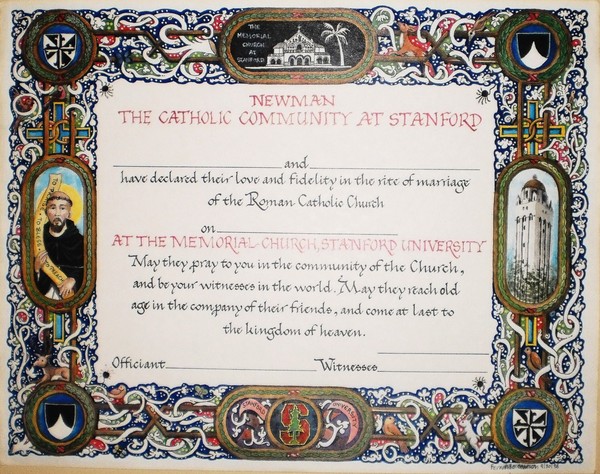 THE
MEMORIAL
CHURCH
AT
STANFORD
NEWMAN
THE CATHOLIC COMMUNITY AT STANFORD
and
have declared their love and fidelity in the rite of marriage
of the Roman Catholic Church
on
AT THE MEMORIAL CHURCH, STANFORD UNIVERSITY
May they pray to you in the community of the Church,
and be your witnesses in the world. May they reach old
age in the company of their friends, and come at last to
the kingdom of heaven.
Officiant Witnesses
STANFORD UNIVERSITY